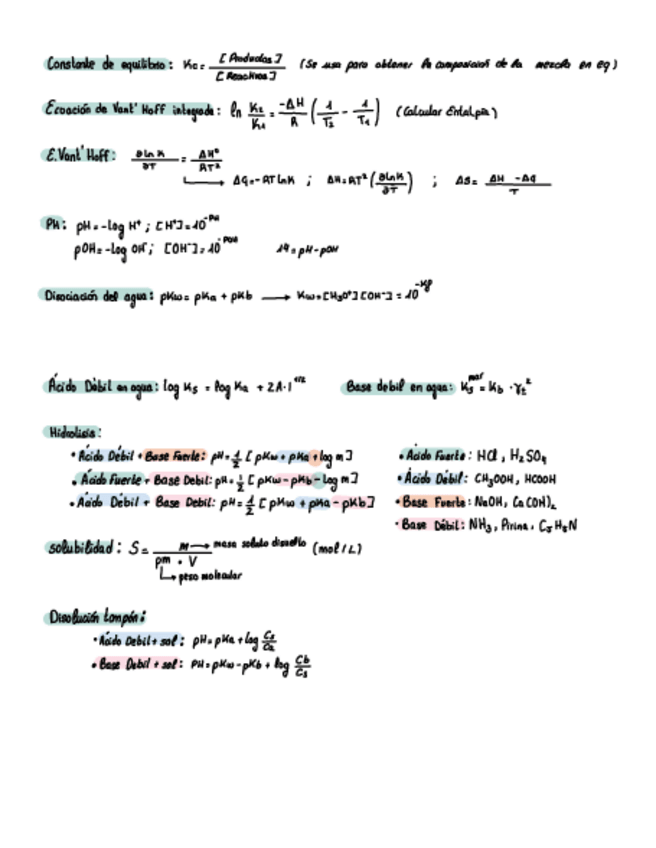 Constante de equilibrio: Kc = [Productos] / [Reactivos] (Se usa para obtener la composicion de la mezcla en eq)
Ecuación de Vant' Hoff integrada: ln K2/K1 = -ΔH/R (1/T2 - 1/T1) (Calcular Entalpía)
E. Vant' Hoff: ∂lnK/∂T = ΔH°/RT²
→ Δg=-RTlnK ; ΔH=RT² (∂lnK/∂T) ; ΔS= ΔH - Δg / T
PH: pH=-log H⁺ ; [H⁺]=10^-PH
pOH=-log OH⁻ ; [OH⁻]=10^-POH 14=pH-pOH
Disociación del agua: pKw= pKa + pKb → Kw=[H3O⁺][OH⁻] = 10^-Kp
Ácido Débil en agua: log Ks = log Ka + 2A·I^1/2 Base debil en agua: Ks = Kb · γ±²
Hidrolisis:
• Ácido Débil + Base Fuerte: pH=1/2 [pKw + pKa + log m] • Ácido Fuerte: HCl, H2SO4
• Ácido Fuerte + Base Debil: pH=1/2 [pKw-pKb-log m] • Ácido Débil: CH3OOH, HCOOH
• Ácido Débil + Base Debil: pH=1/2 [pKw + pKa - pKb] • Base Fuerte: NaOH, Ca(OH)2
• Base Débil: NH3, Pirina, C5H5N
solubilidad: S= m / pm · V → masa soluto disuelto (mol/L)
↳ peso molecular
Disolución tampón:
• Ácido Debil + sal: pH=pKa + log Cs/Ca
• Base Debil + sal: PH=pKw-pKb + log Cb/Cs